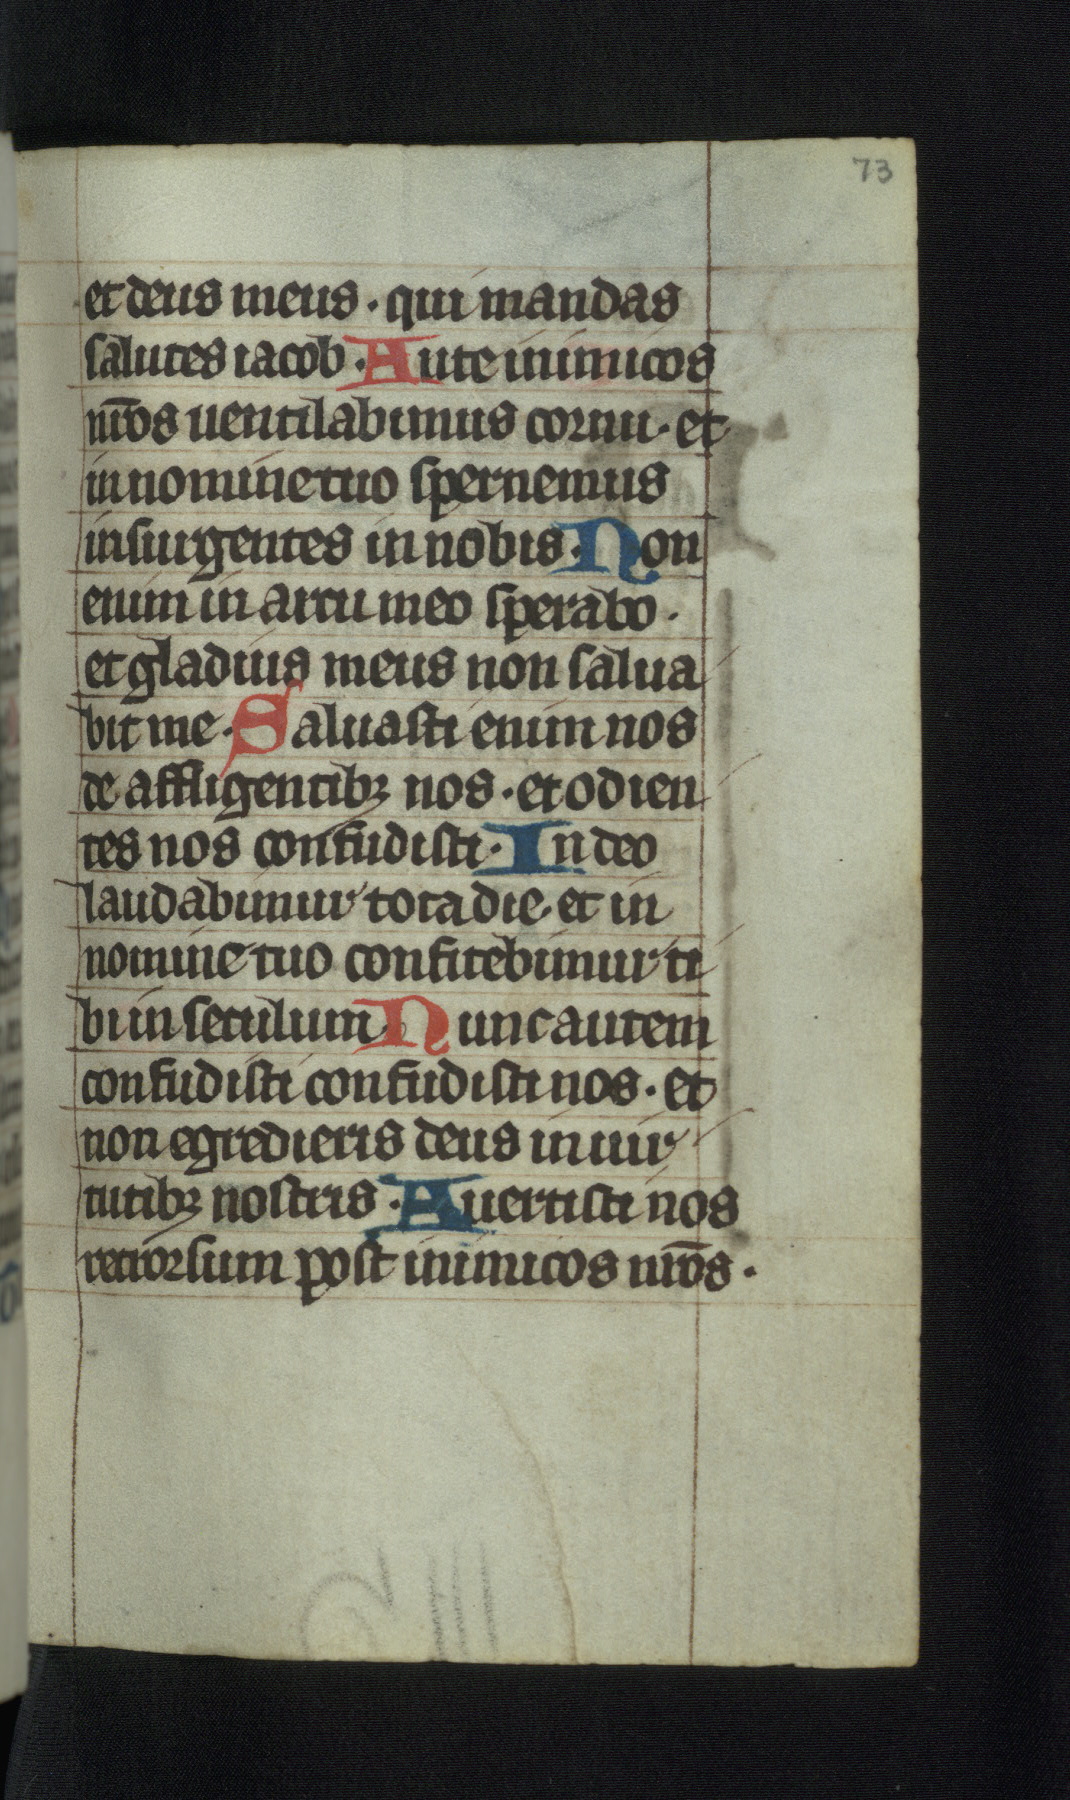 73
et deus meus · qui mandas
salutes iacob · A ute inimicos
nr̄os uentilabimus cornu · et
in nomine tuo spernemus
insurgentes in nobis · Non
enim in arcu meo sperabo ·
et gladius meus non salua
bit me · Saluasti enim nos
de affligentibꝫ nos · et odien
tes nos confudisti · In deo
laudabimur tota die · et in
nomine tuo confitebimur ti
bi in seculum · Nunc autem
confudisti confudisti nos · et
non egredieris deus in uir
tutibꝫ nostris · Auertisti nos
retrorsum post inimicos nr̄os ·